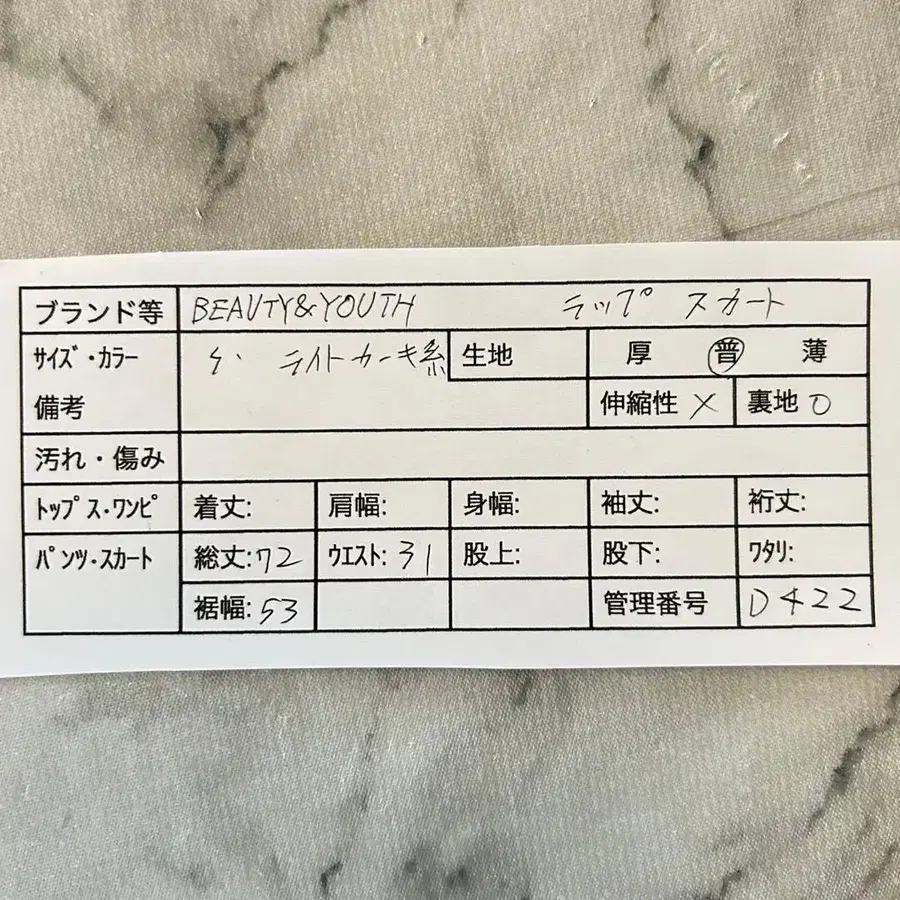 ブランド等 BEAUTY&YOUTH ラップ スカート
サイズ・カラー ライトカーキ系 生地 厚 普 薄
備考 伸縮性 × 裏地 ○
汚れ・傷み
トップス・ワンピ 着丈: 肩幅: 身幅: 袖丈: 裄丈:
パンツ・スカート 総丈:72 ウエスト: 31 股上: 股下: ワタリ:
裾幅: 53 管理番号 D422